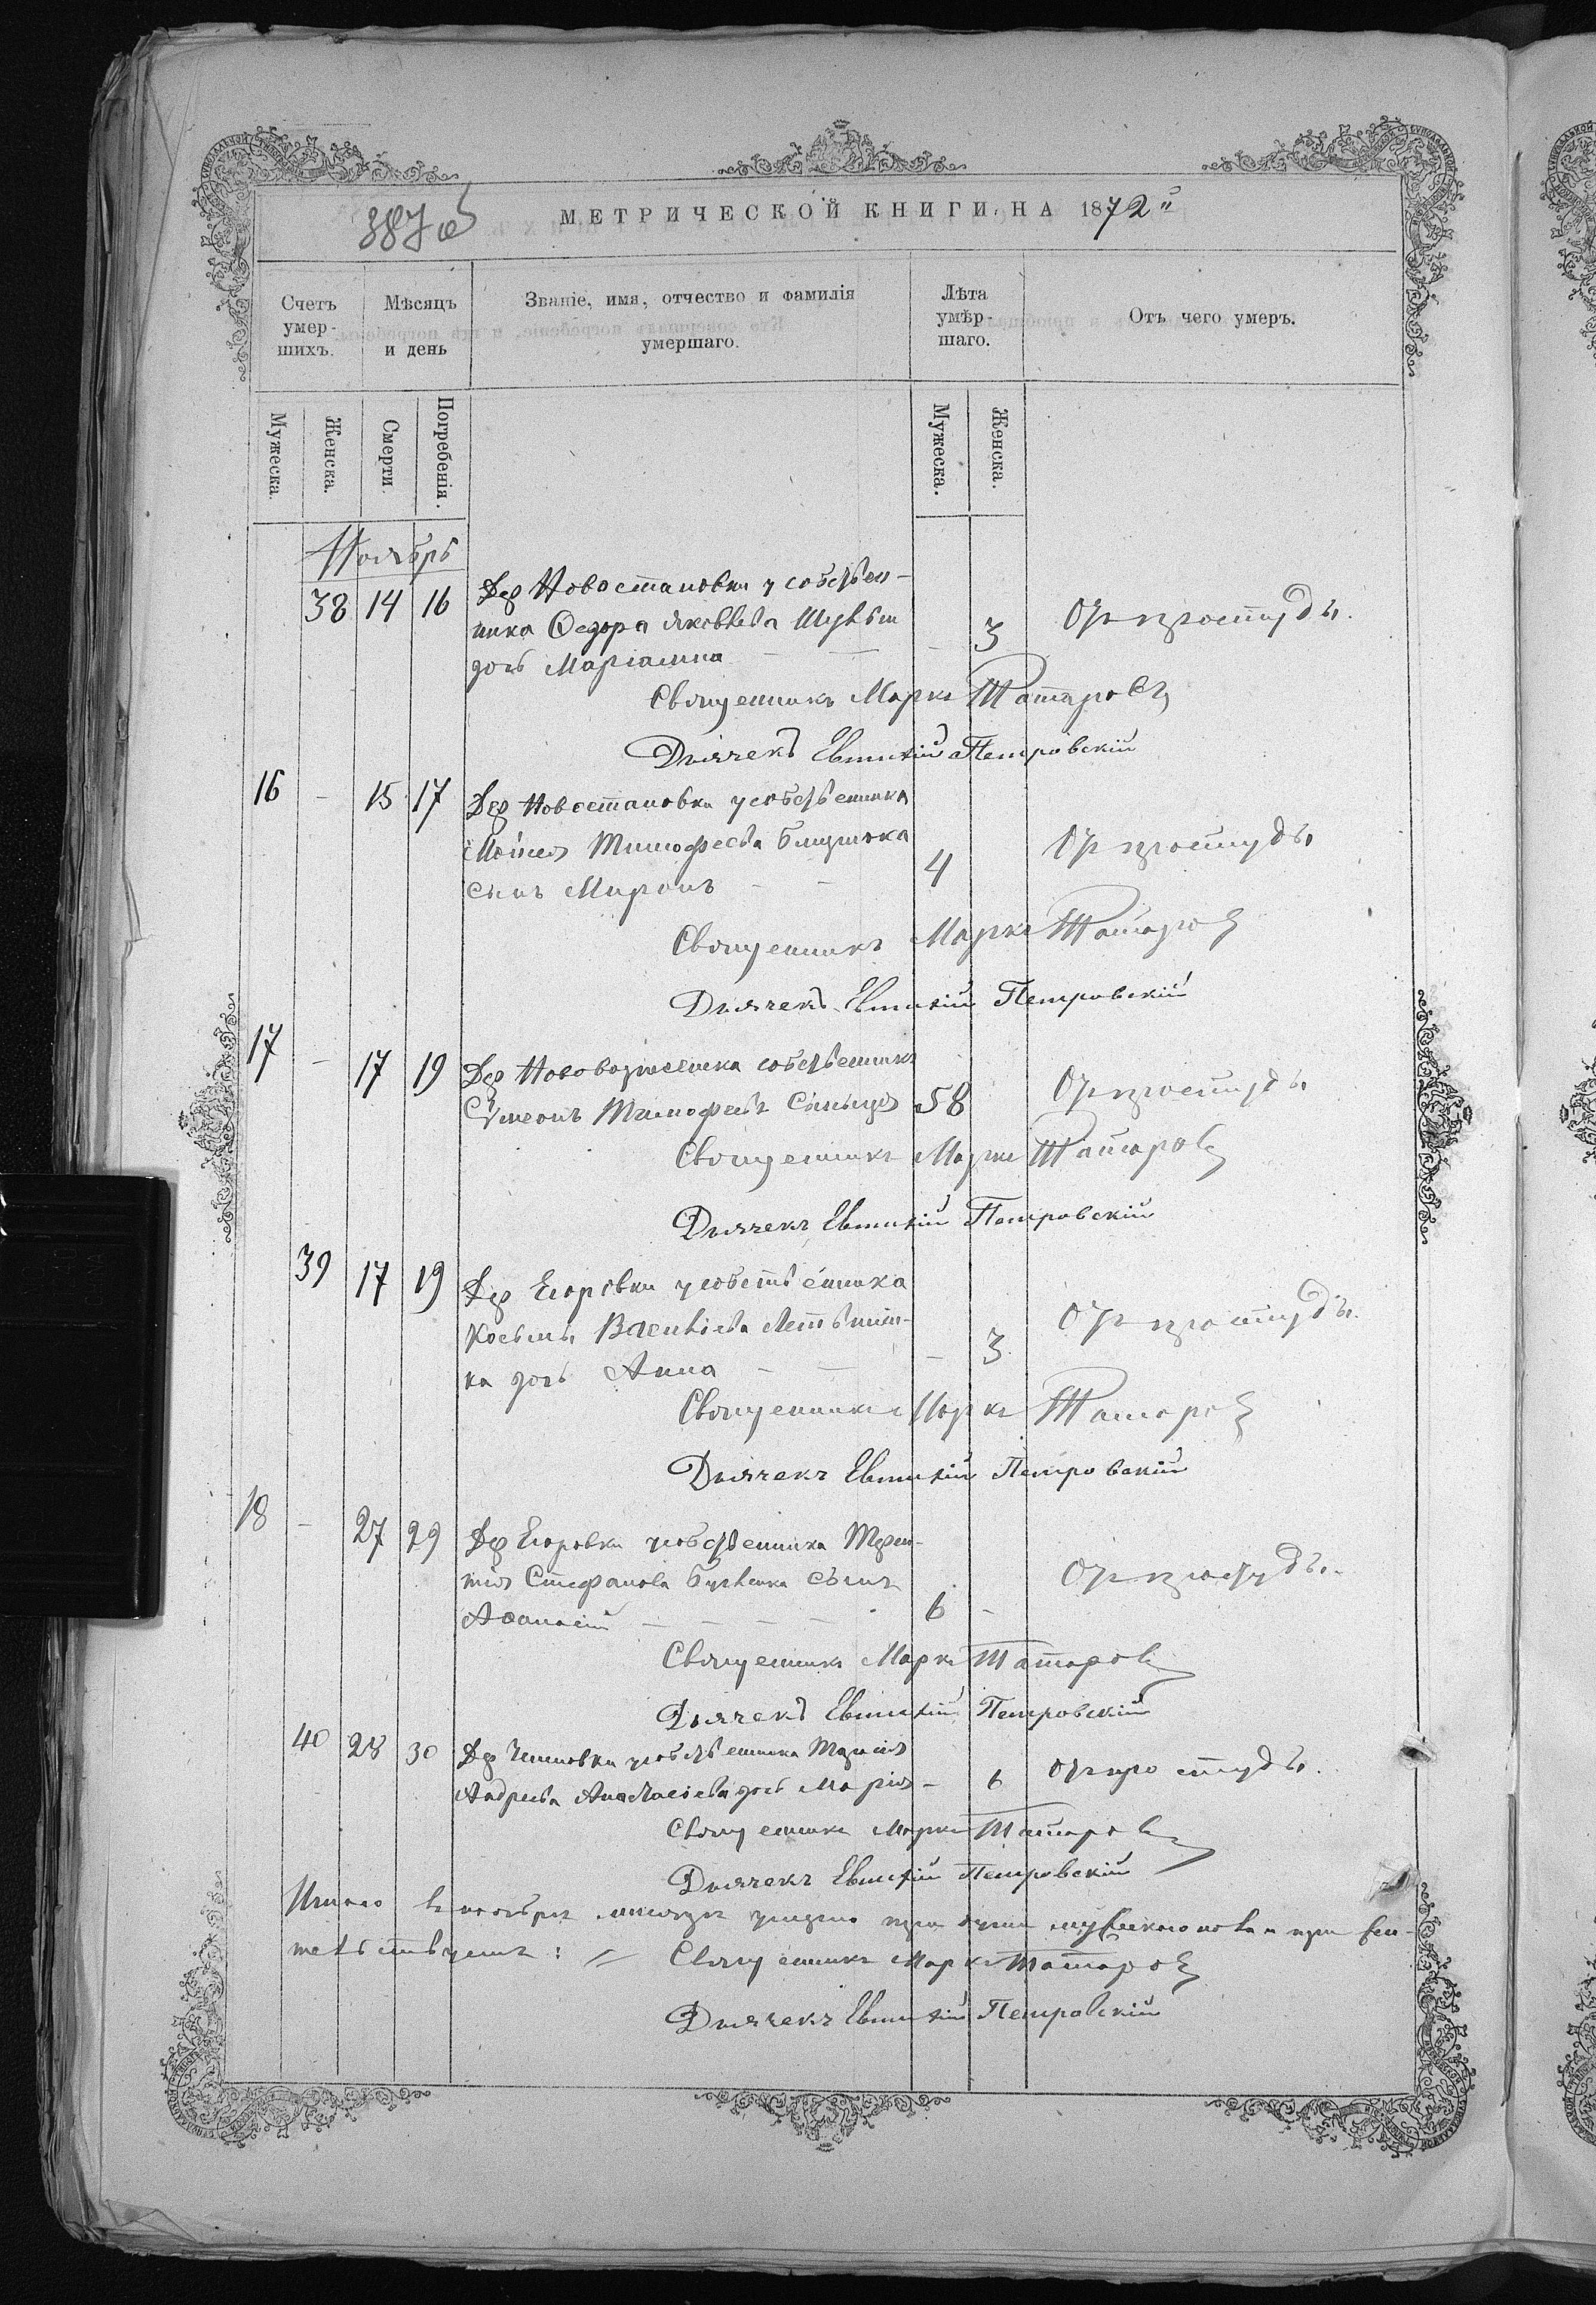 387 об
МЕТРИЧЕСКОЙ КНИГИ, НА 1872й
Счетъ умер-шихъ.
Мѣсяцъ и день
Званіе, имя, отчество и фамилія умершаго.
Лѣта умѣр-шаго.
Отъ чего умеръ.
Мужеска.
Женска.
Смерти.
Погребенія.
Мужеска.
Женска.
Ноябрь
38 14 16 Дер Новостановки у собствен-
ника Ѳедора Яковлева
дочь Маріамна — — — 3 От простуды.
Священникъ Маркъ Татаровъ
Дьячекъ Евтихій Петровскій
16 – 15 17 Дер Новостановки у собственника
Моисея Тимофеева Близнюка
сынъ Миронъ – – 4 От простуды
Священникъ Маркъ Татаровъ
Дьячекъ Евтихій Петровскій
17 – 17 19 Дер собственникъ
Сѵмеонъ Тимофеевъ Синица 58 От простуды
Священникъ Маркъ Татаровъ
Дьячекъ Евтихій Петровскій
39 17 19 Дер Егоровки у собственника
Космы Василіева
ка дочь Анна – – – 3 От простуды.
Священникъ Маркъ Татаровъ
Дьячекъ Евтихій Петровскій
18 – 27 29 Дер Егоровки у собственника Терен-
тія Стефанова сынъ
Аѳанасій – – – 6 – От простуды.
Священникъ Маркъ Татаровъ
Дьячекъ Евтихій Петровскій
40 28 30 Дер у собственника
Андреева дочь Марія – 6 От простуды.
Священникъ Маркъ Татаровъ
Дьячекъ Евтихій Петровскій
Итого въ ноябрѣ месяцѣ умерло три души мужескаго пола и три жен-
Священникъ Маркъ Татаровъ
Дьячекъ Евтихій Петровскій